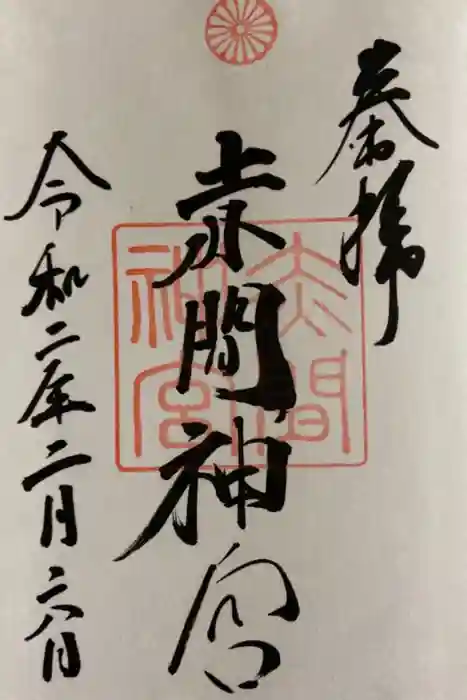 奉拝
赤間神宮
令和二年二月六日
赤間
神宮